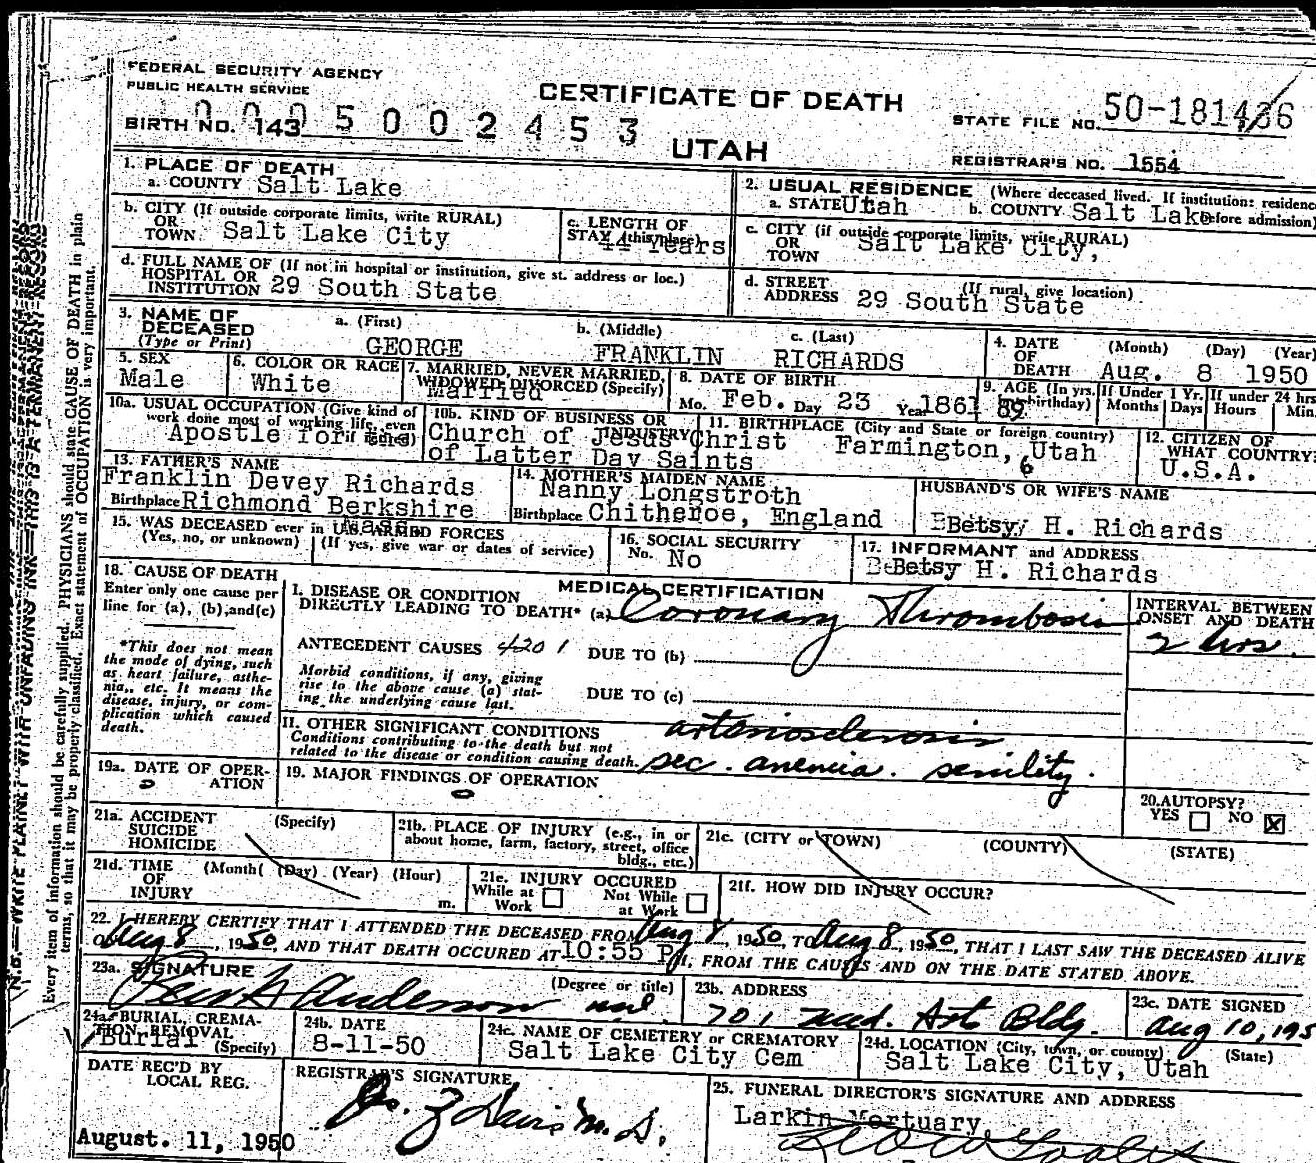 FEDERAL SECURITY AGENCY
PUBLIC HEALTH SERVICE
CERTIFICATE OF DEATH
UTAH
BIRTH NO. 143
0005002453
STATE FILE NO. 50-181436
REGISTRAR'S NO. 1554
1. PLACE OF DEATH
a. COUNTY Salt Lake
2. USUAL RESIDENCE (Where deceased lived. If institution: residence
a. STATE Utah b. COUNTY Salt Lake before admission)
b. CITY (If outside corporate limits, write RURAL)
OR
TOWN Salt Lake City
c. LENGTH OF
STAY (this place) 44 Years
c. CITY (if outside corporate limits, write RURAL)
OR
TOWN Salt Lake City,
d. FULL NAME OF (If not in hospital or institution, give st. address or loc.)
HOSPITAL OR
INSTITUTION 29 South State
d. STREET
ADDRESS 29 South State
(If rural, give location)
3. NAME OF
DECEASED
(Type or Print)
a. (First) b. (Middle) c. (Last)
GEORGE FRANKLIN RICHARDS
4. DATE
OF
DEATH
(Month) (Day) (Year)
Aug. 8 1950
5. SEX
Male
6. COLOR OR RACE
White
7. MARRIED, NEVER MARRIED,
WIDOWED DIVORCED (Specify)
Married
8. DATE OF BIRTH
Mo. Feb. Day 23 Year 1861
9. AGE (In yrs. birthday)
89
If Under 1 Yr.
Months Days
If under 24 hrs
Hours Min.
10a. USUAL OCCUPATION (Give kind of
work done most of working life, even
if retired)
Apostle for
10b. KIND OF BUSINESS OR
INDUSTRY
Church of Jesus Christ
of Latter Day Saints
11. BIRTHPLACE (City and State or foreign country)
Farmington, Utah
6
12. CITIZEN OF
WHAT COUNTRY?
U.S.A.
13. FATHER'S NAME
Franklin Devey Richards
Birthplace Richmond Berkshire
Mass.
14. MOTHER'S MAIDEN NAME
Nanny Longstroth
Birthplace Chitheroe, England
HUSBAND'S OR WIFE'S NAME
Betsy H. Richards
15. WAS DECEASED ever in U.S. ARMED FORCES
(Yes, no, or unknown) (If yes, give war or dates of service)
16. SOCIAL SECURITY
No. No
17. INFORMANT and ADDRESS
Betsy H. Richards
18. CAUSE OF DEATH
Enter only one cause per
line for (a), (b), and (c)
*This does not mean
the mode of dying, such
as heart failure, asthe-
nia, etc. It means the
disease, injury, or com-
plication which caused
death.
MEDICAL CERTIFICATION
I. DISEASE OR CONDITION
DIRECTLY LEADING TO DEATH* (a) Coronary Thrombosis
INTERVAL BETWEEN
ONSET AND DEATH
2 hrs.
ANTECEDENT CAUSES 4201 DUE TO (b)
Morbid conditions, if any, giving
rise to the above cause (a) stat-
ing the underlying cause last.
DUE TO (c)
II. OTHER SIGNIFICANT CONDITIONS
Conditions contributing to the death but not
related to the disease or condition causing death.
arteriosclerosis
sec. anemia. senility.
19a. DATE OF OPER-
ATION
0
19. MAJOR FINDINGS OF OPERATION
0
20. AUTOPSY?
YES NO X
21a. ACCIDENT
SUICIDE
HOMICIDE
(Specify)
21b. PLACE OF INJURY (e.g., in or
about home, farm, factory, street, office
bldg., etc.)
21c. (CITY or TOWN) (COUNTY) (STATE)
21d. TIME
OF
INJURY
(Month( (Day) (Year) (Hour)
m.
21e. INJURY OCCURED
While at
Work
Not While
at Work
21f. HOW DID INJURY OCCUR?
22. I HEREBY CERTIFY THAT I ATTENDED THE DECEASED FROM Aug 8, 1950, TO Aug 8, 1950, THAT I LAST SAW THE DECEASED ALIVE
ON Aug 8, 1950, AND THAT DEATH OCCURED AT 10:55 P M, FROM THE CAUSES AND ON THE DATE STATED ABOVE.
23a. SIGNATURE
Anderson
(Degree or title)
md.
23b. ADDRESS
701 Med. Arts Bldg.
23c. DATE SIGNED
Aug 10, 195
24a. BURIAL, CREMA-
TION, REMOVAL
(Specify)
Burial
24b. DATE
8-11-50
24c. NAME OF CEMETERY or CREMATORY
Salt Lake City Cem
24d. LOCATION (City, town, or county) (State)
Salt Lake City, Utah
DATE REC'D BY
LOCAL REG.
August. 11, 1950
REGISTRAR'S SIGNATURE
M.D.
25. FUNERAL DIRECTOR'S SIGNATURE AND ADDRESS
Larkin Mortuary,
N.B.—WRITE PLAINLY WITH UNFADING INK—THIS IS A PERMANENT RECORD
Every item of information should be carefully supplied. PHYSICIANS should state CAUSE OF DEATH in plain
terms, so that it may be properly classified. Exact statement of OCCUPATION is very important.